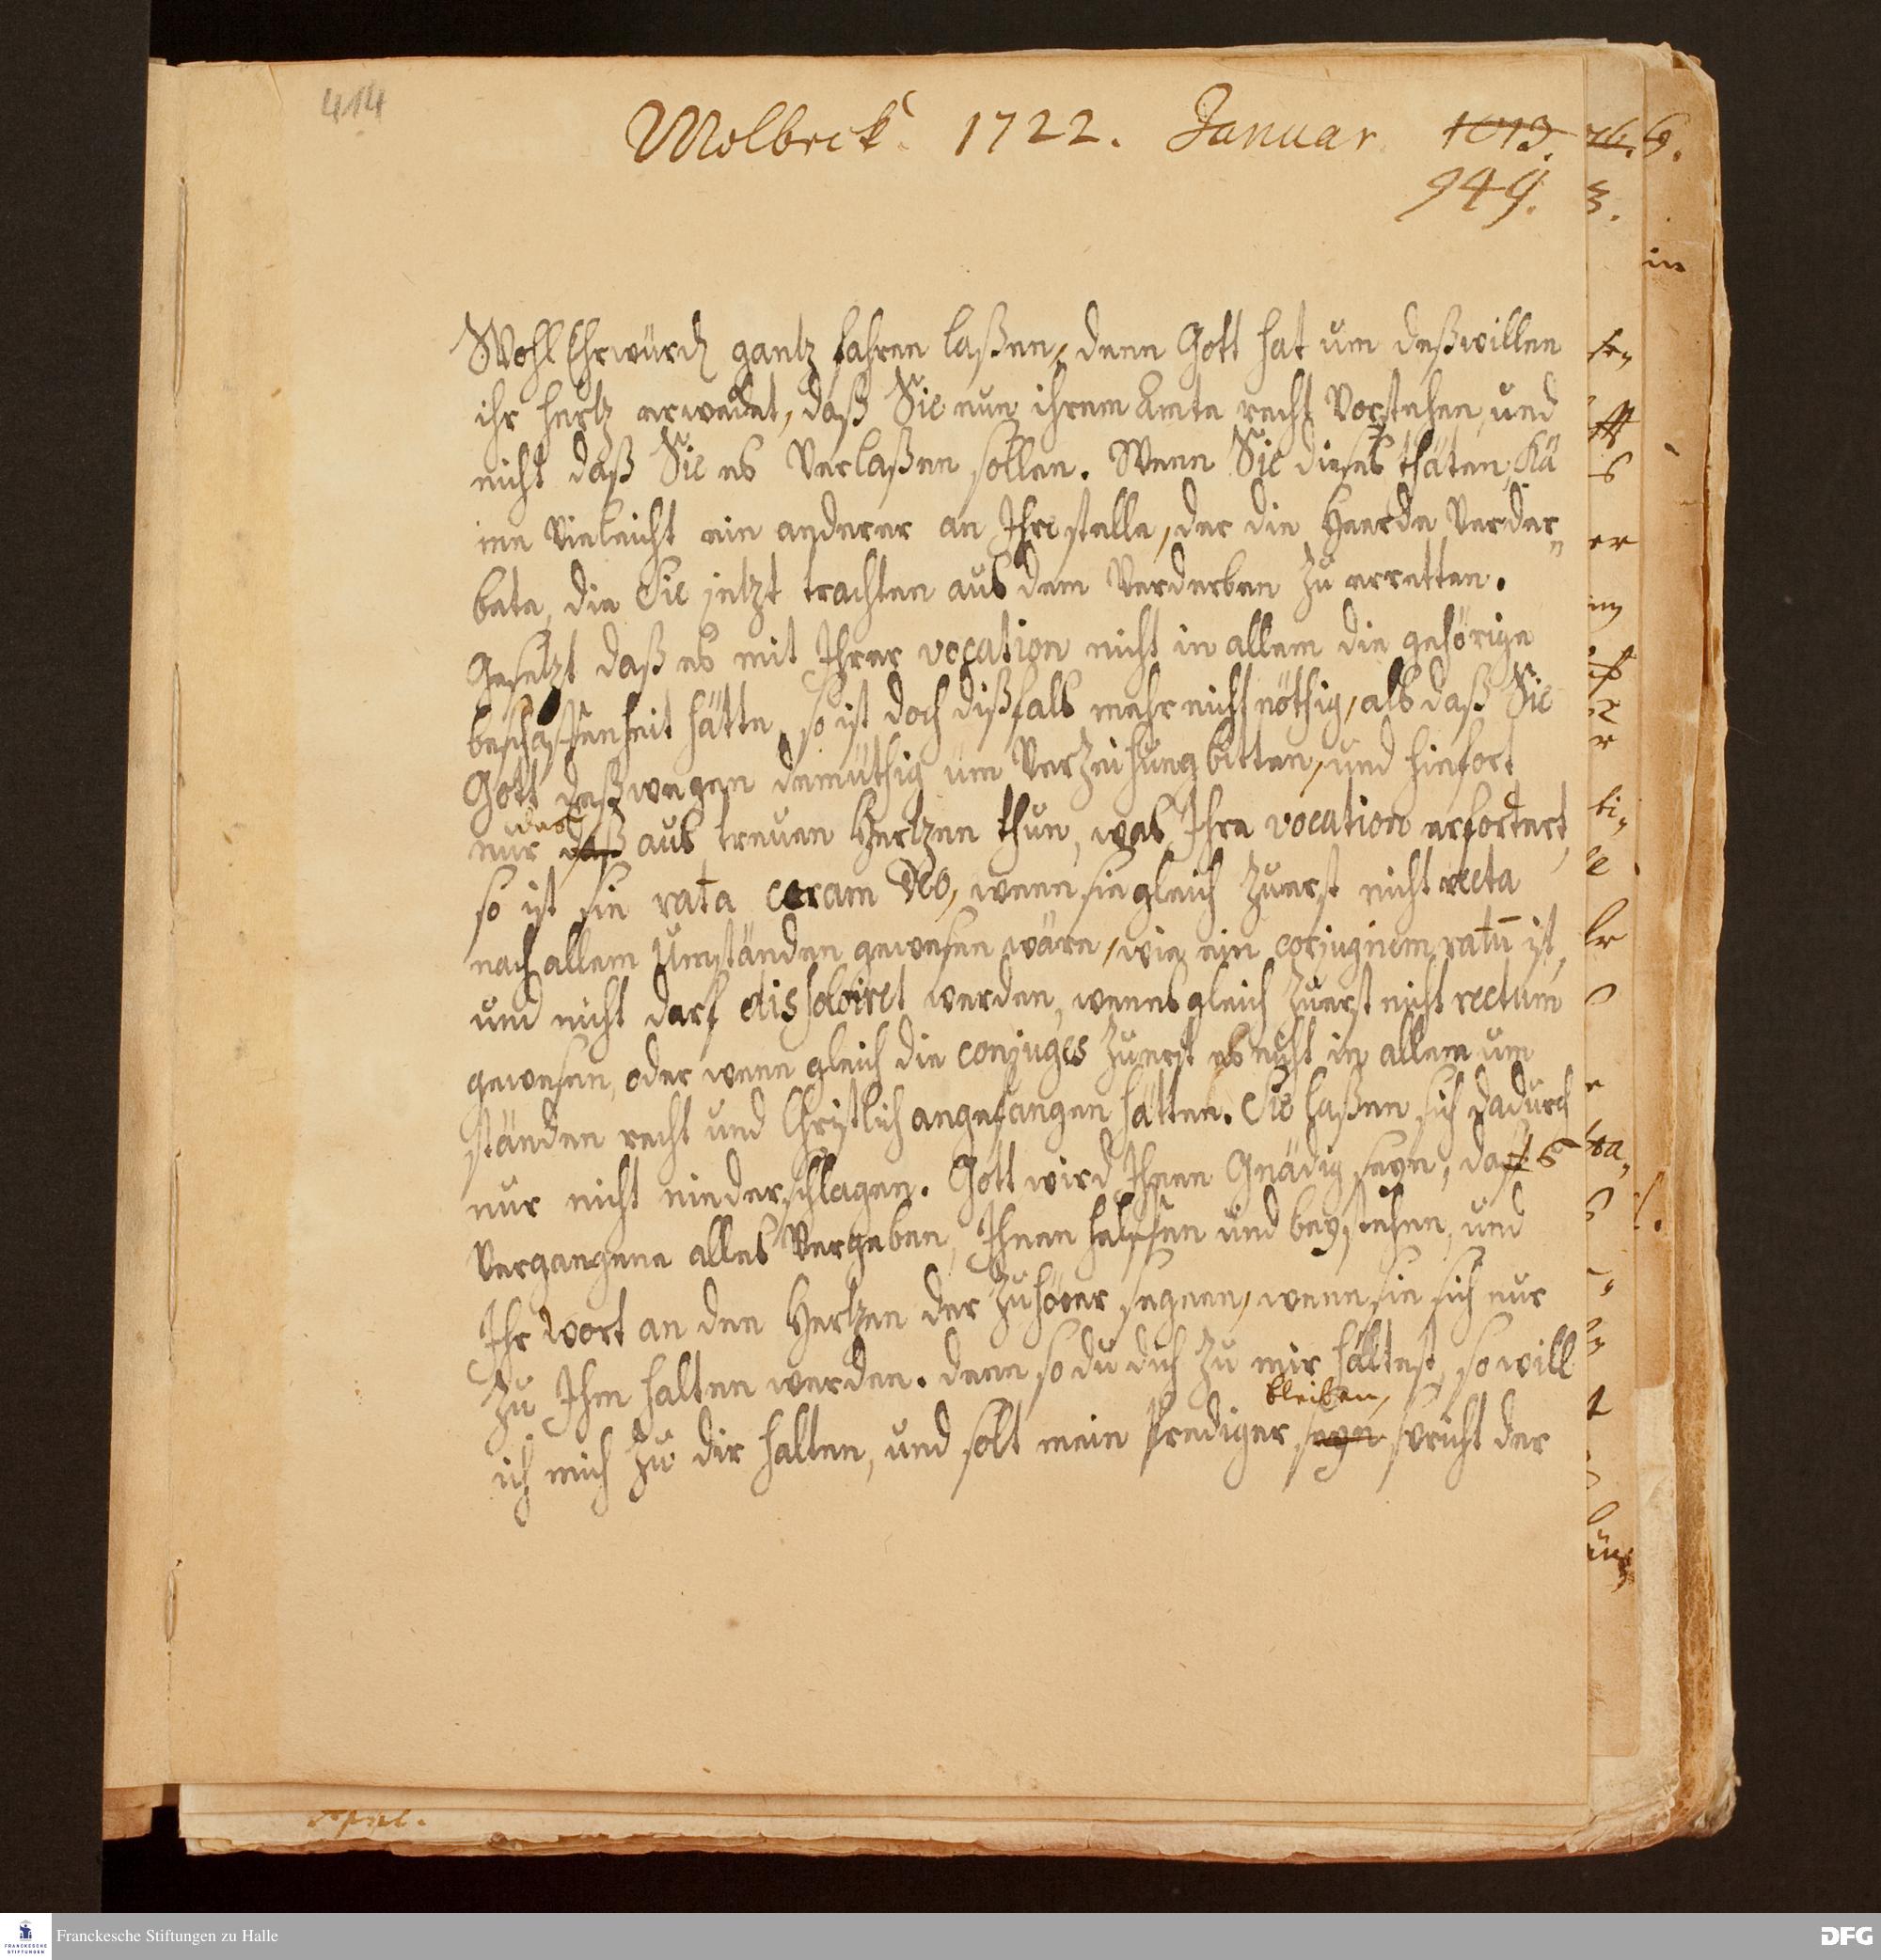 414
Molbeck. 1722. Januar. 1013.
949.
WohlEhrwürd gantz fahren laßen, denn Gott hat um deßwillen
ihr hertz erwecket, daß Sie nun ihrem Amte recht Vorstehen, und
nicht daß Sie es Verlaßen sollen. Wenn Sie dieses thäten, Kä
me Vieleicht ein anderer an Ihre stelle, der die Heerde Verder„
bete, die Sie jetzt trachten aus dem Verderben zu erretten.
Gesetzt daß es mit Ihrer vocation nicht in allem die gehörige
beschaffenheit hätte, so ist doch dißfals mehr nicht nöthig, als daß Sie
Gott deßwegen demüthig um Verzeihung bitten, und hinfort
das
nur daß aus treuen Hertzen thun, was Ihre vocation erfordert,
so ist sie rata coram Deo, wenn sie gleich zuerst nicht recta
nach allem Umständen gewesen wäre, wie ein conjugium ratū ist,
und nicht darf dissolviret werden, wenns gleich zuerst nicht rectum
gewesen, oder wenn gleich die conjuges zuerst es nicht in allem um
ständen recht und Christlich angefangen hätten. Sie laßen sich dadurch
nur nicht niederschlagen. Gott wird Ihnen Gnädig seyn, das
Vergangene alles Vergeben, Ihnen helffen und beystehen, und
Ihr Wort an den Hertzen der Zuhörer segnen, wenn sie sich nur
zu Ihm halten werden. denn so du dich zu mir hältest, so will
bleiben,
ich mich zu dir halten, und solt mein Prediger seyn spricht der
April.
Franckesche Stiftungen zu Halle
FRANCKESCHE
STIFTUNGEN
DFG